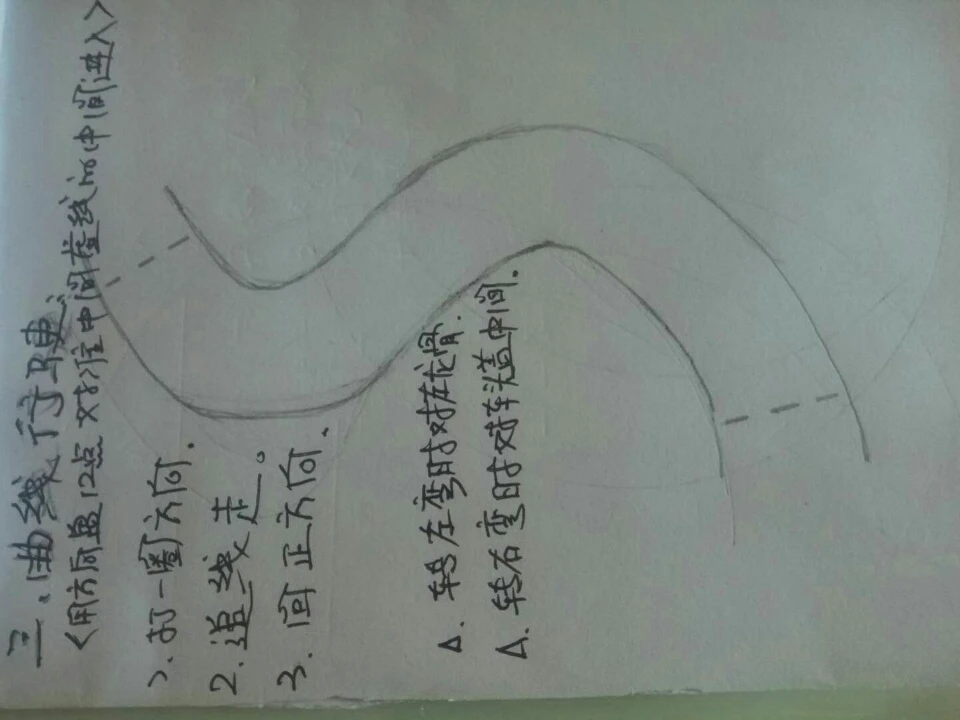 三.曲线行驶:
<用方向盘12点对准中间虚线的中间进入>
1.打一圈方向.
2.追线走。
3.回正方向、
△.转左弯时对左龙骨.
△.转右弯时对车头盖中间.